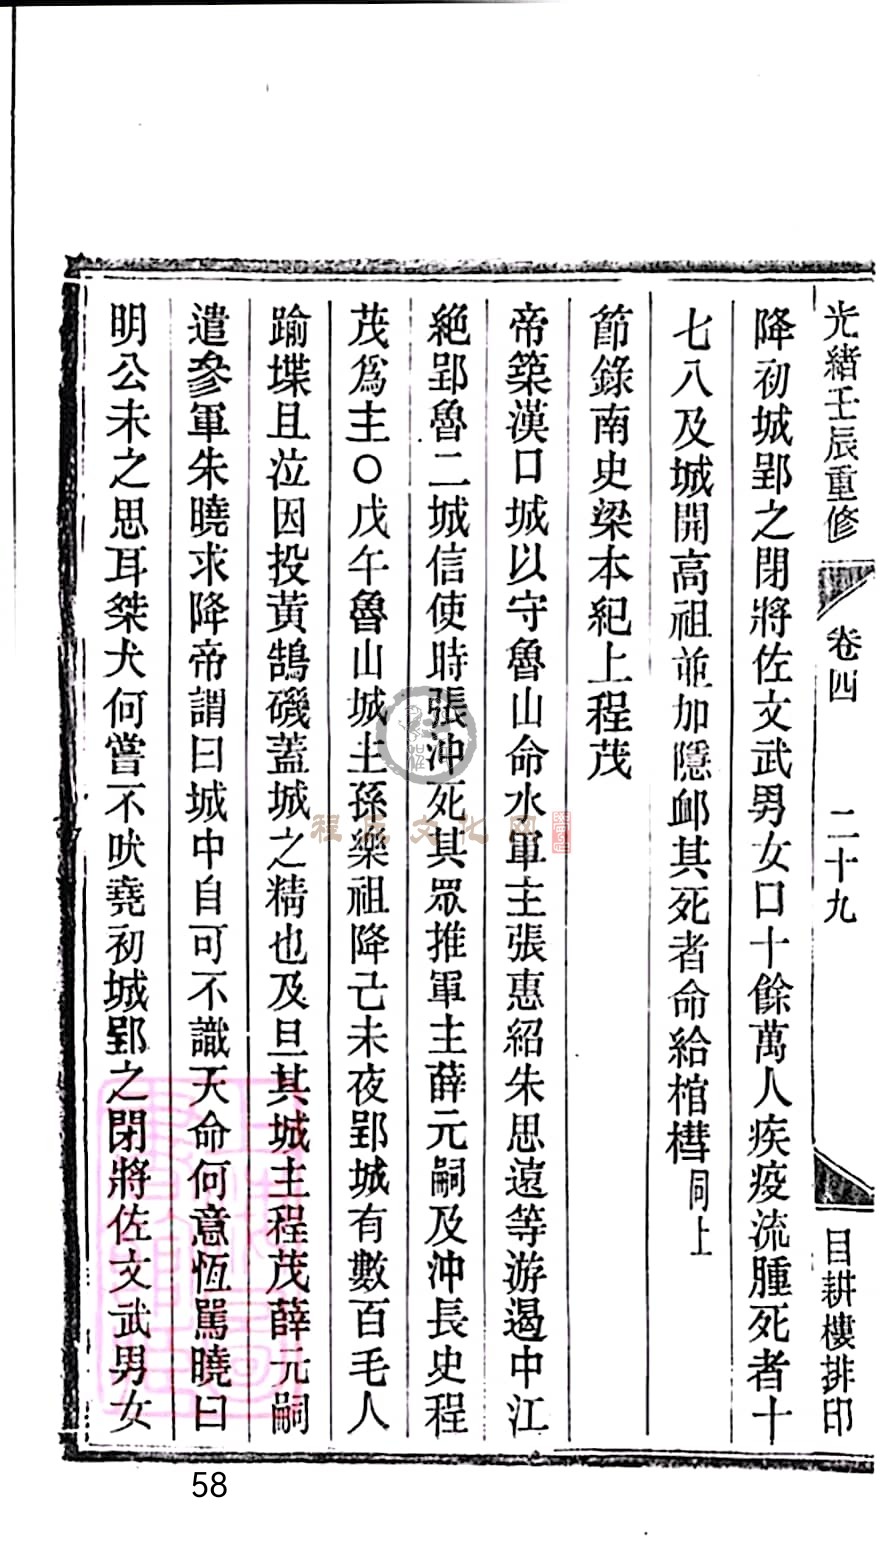 光緒壬辰重修 卷四 二十九 目耕樓排印
降初城郢之閉將佐文武男女口十餘萬人疾疫流腫死者十
七八及城開高祖並加隱卹其死者命給棺槥同上
節錄南史梁本紀上程茂
帝築漢口城以守魯山命水軍主張惠紹朱思遠等游遏中江
絕郢魯二城信使時張沖死其眾推軍主薛元嗣及沖長史程
茂爲主○戊午魯山城主孫樂祖降己未夜郢城有數百毛人
踰堞且泣因投黃鵠磯蓋城之精也及旦其城主程茂薛元嗣
遣參軍朱曉求降帝謂曰城中自可不識天命何意恆罵曉曰
明公未之思耳桀犬何嘗不吠堯初城郢之閉將佐文武男女
程氏文化网
58